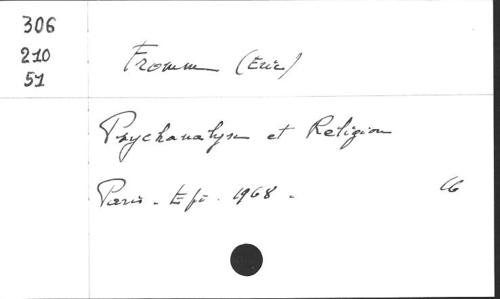 306
210
51
Fromm (Eric)
Psychanalyse et Religion
Paris - Epi - 1968 -